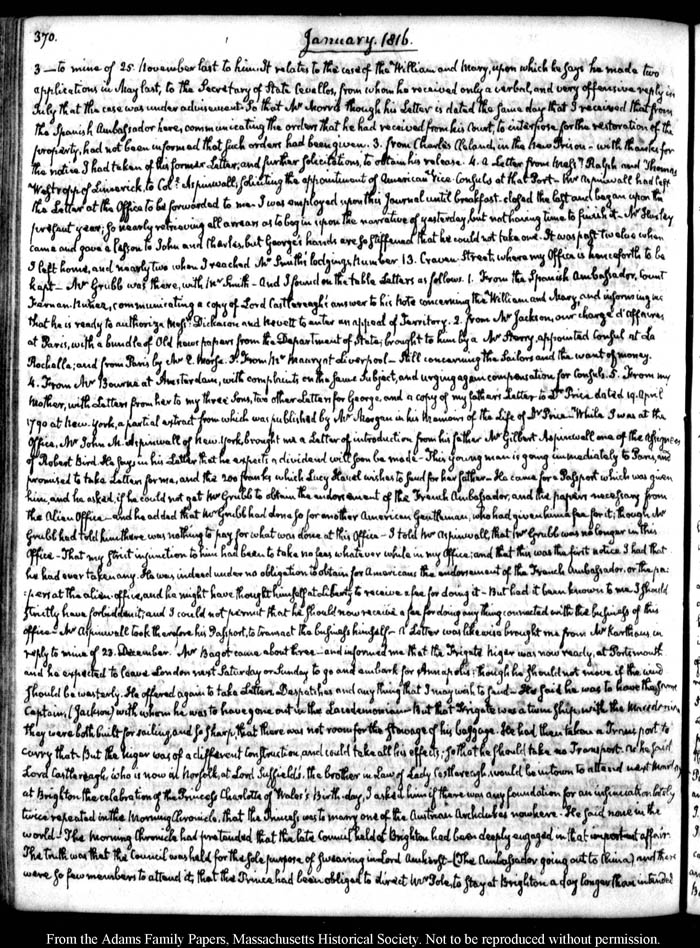 370.
January. 1816.
3 — to mine of 25. November last to him. It relates to the case of the William and Mary, upon which he says he made two
applications in May last, to the Secretary of State Cevallos, from whom he received only a verbal, and very offensive reply in
July that the case was under advisement. So that Mr Morris though his Letter is dated the same day that I received that from
the Spanish Ambassador here, communicating the orders that he had received from his Court, to interpose for the restoration of the
property, had not been informed that such orders had been given. 3. from Charles Cleland, in the New Prison — with thanks for
the notice I had taken of his former Letter, and further solicitations, to obtain his release. 4. a Letter from Messrs Ralph and Thomas
Westropp of Limerick, to Coll. Aspinwall, soliciting the appointment of American Vice-Consuls at that Port — Mr Aspinwall had left
the Letter at the Office to be forwarded to me. I was employed upon this Journal until breakfast. closed the last and began upon the
present year; so nearly retrieving all arrears as to begin upon the narrative of yesterday, but not having time to finish it. Mr Huxley
came and gave a lesson to John and Charles, but George's hands are so stiffened that he could not take one. It was past twelve when
I left home, and nearly two when I reached Mr Smith's lodgings, Number 13. Craven Street, where my Office is henceforth to be
kept — Mr Grubb was there, with Mr Smith — And I found on the table Letters as follows. 1. From the Spanish Ambassador, Count
Fernan-Nuñez, communicating a copy of Lord Castlereagh's answer to his Note concerning the William and Mary, and informing me
that he is ready to authorize Messrs Dickason and Nevett to enter an appeal of Territory. 2. from Mr Jackson, our chargé d'affaires,
at Paris, with a bundle of Old newspapers from the Department of State; brought to him by a Mr Storry, appointed Consul at La
Rochelle; and from Paris by Mr E. Morse. 3. From Mr Maury at Liverpool — still concerning the Sailors and the want of money.
4. From Mr Bourne at Amsterdam, with complaints on the same subject, and urging again compensation for Consuls. 5. From my
Mother, with Letters from her to my three Sons, two other Letters for George, and a copy of my father's Letter to Dr Price dated 19. April
1790 at New York, a partial extract from which was published by Mr Morgan in his Memoirs of the Life of Dr Price — While I was at the
Office, Mr John M. Aspinwall of New York, brought me a Letter of introduction from his father Mr Gilbert Aspinwall one of the Assignees
of Robert Bird. He says, in his Letter that he expects a dividend will soon be made — This young man is going immediately to Paris, and
promised to take Letters for me, and the 200 franks which Lucy Hazel wishes to send for her father — He came for a Passport which was given
him, and he asked if he could not get Mr Grubb to obtain the endorsement of the French Ambassador, and the papers necessary from
the Alien Office — and he added that Mr Grubb had done so for another American Gentleman, who had given him a fee for it; though Mr
Grubb had told him there was nothing to pay for what was done at this Office — I told Mr Aspinwall, that Mr Grubb was no longer in this
Office — That my strict injunction to him had been to take no fees whatever while in my Office; and that this was the first notice I had that
he had ever taken any. He was indeed under no obligation to obtain for Americans the endorsement of the French Ambassador, or the pa:
:pers at the alien-office, and he might have thought himself at liberty to receive a fee for doing it — But had it been known to me I should
strictly have forbidden it; and I could not permit that he should now receive a fee for doing any thing connected with the business of this
office — Mr Aspinwall took therefore his Passport, to transact the business himself — A Letter was likewise brought me from Mr Karthaus in
reply to mine of 23. December. Mr Bagot came about three — and informed me that the Frigate Niger was now ready, at Portsmouth
and he expected to leave London next Saturday or Sunday to go and embark for Annapolis: though he should not move if the wind
should be westerly. He offered again to take Letters, Despatches and any thing that I may wish to send — He said he was to have the same
Captain, (Jackson) with whom he was to have gone out in the Lacedemonian — But that Frigate was a twin Ship, with the Macedonian
they were both built for sailing, and so sharp, that there was not room for the stowage of his baggage. He had then taken a Transport to
carry that — But the Niger was of a different construction, and could take all his effects; so that he should take no Transport. He said
Lord Castlereagh, who is now in Norfolk, at Lord Suffield's, the brother in Law of Lady Castlereagh, would be in town to attend next Monday
at Brighton the celebration of the Princess Charlotte of Wales's Birth-day. I asked him if there was any foundation for an insinuation lately
twice repeated in the Morning Chronicle, that the Princess was to marry one of the Austrian Archdukes nowhere — He said none in the
world! The Morning Chronicle had pretended that the late Council held at Brighton had been deeply engaged in that important affair
The truth was that the Council was held for the sole purpose of swearing in Lord Amherst — (The Ambassador going out to China) and there
were so few members to attend it, that the Prince had been obliged to direct Mr Pole, to stay at Brighton a day longer than intended
From the Adams Family Papers, Massachusetts Historical Society. Not to be reproduced without permission.